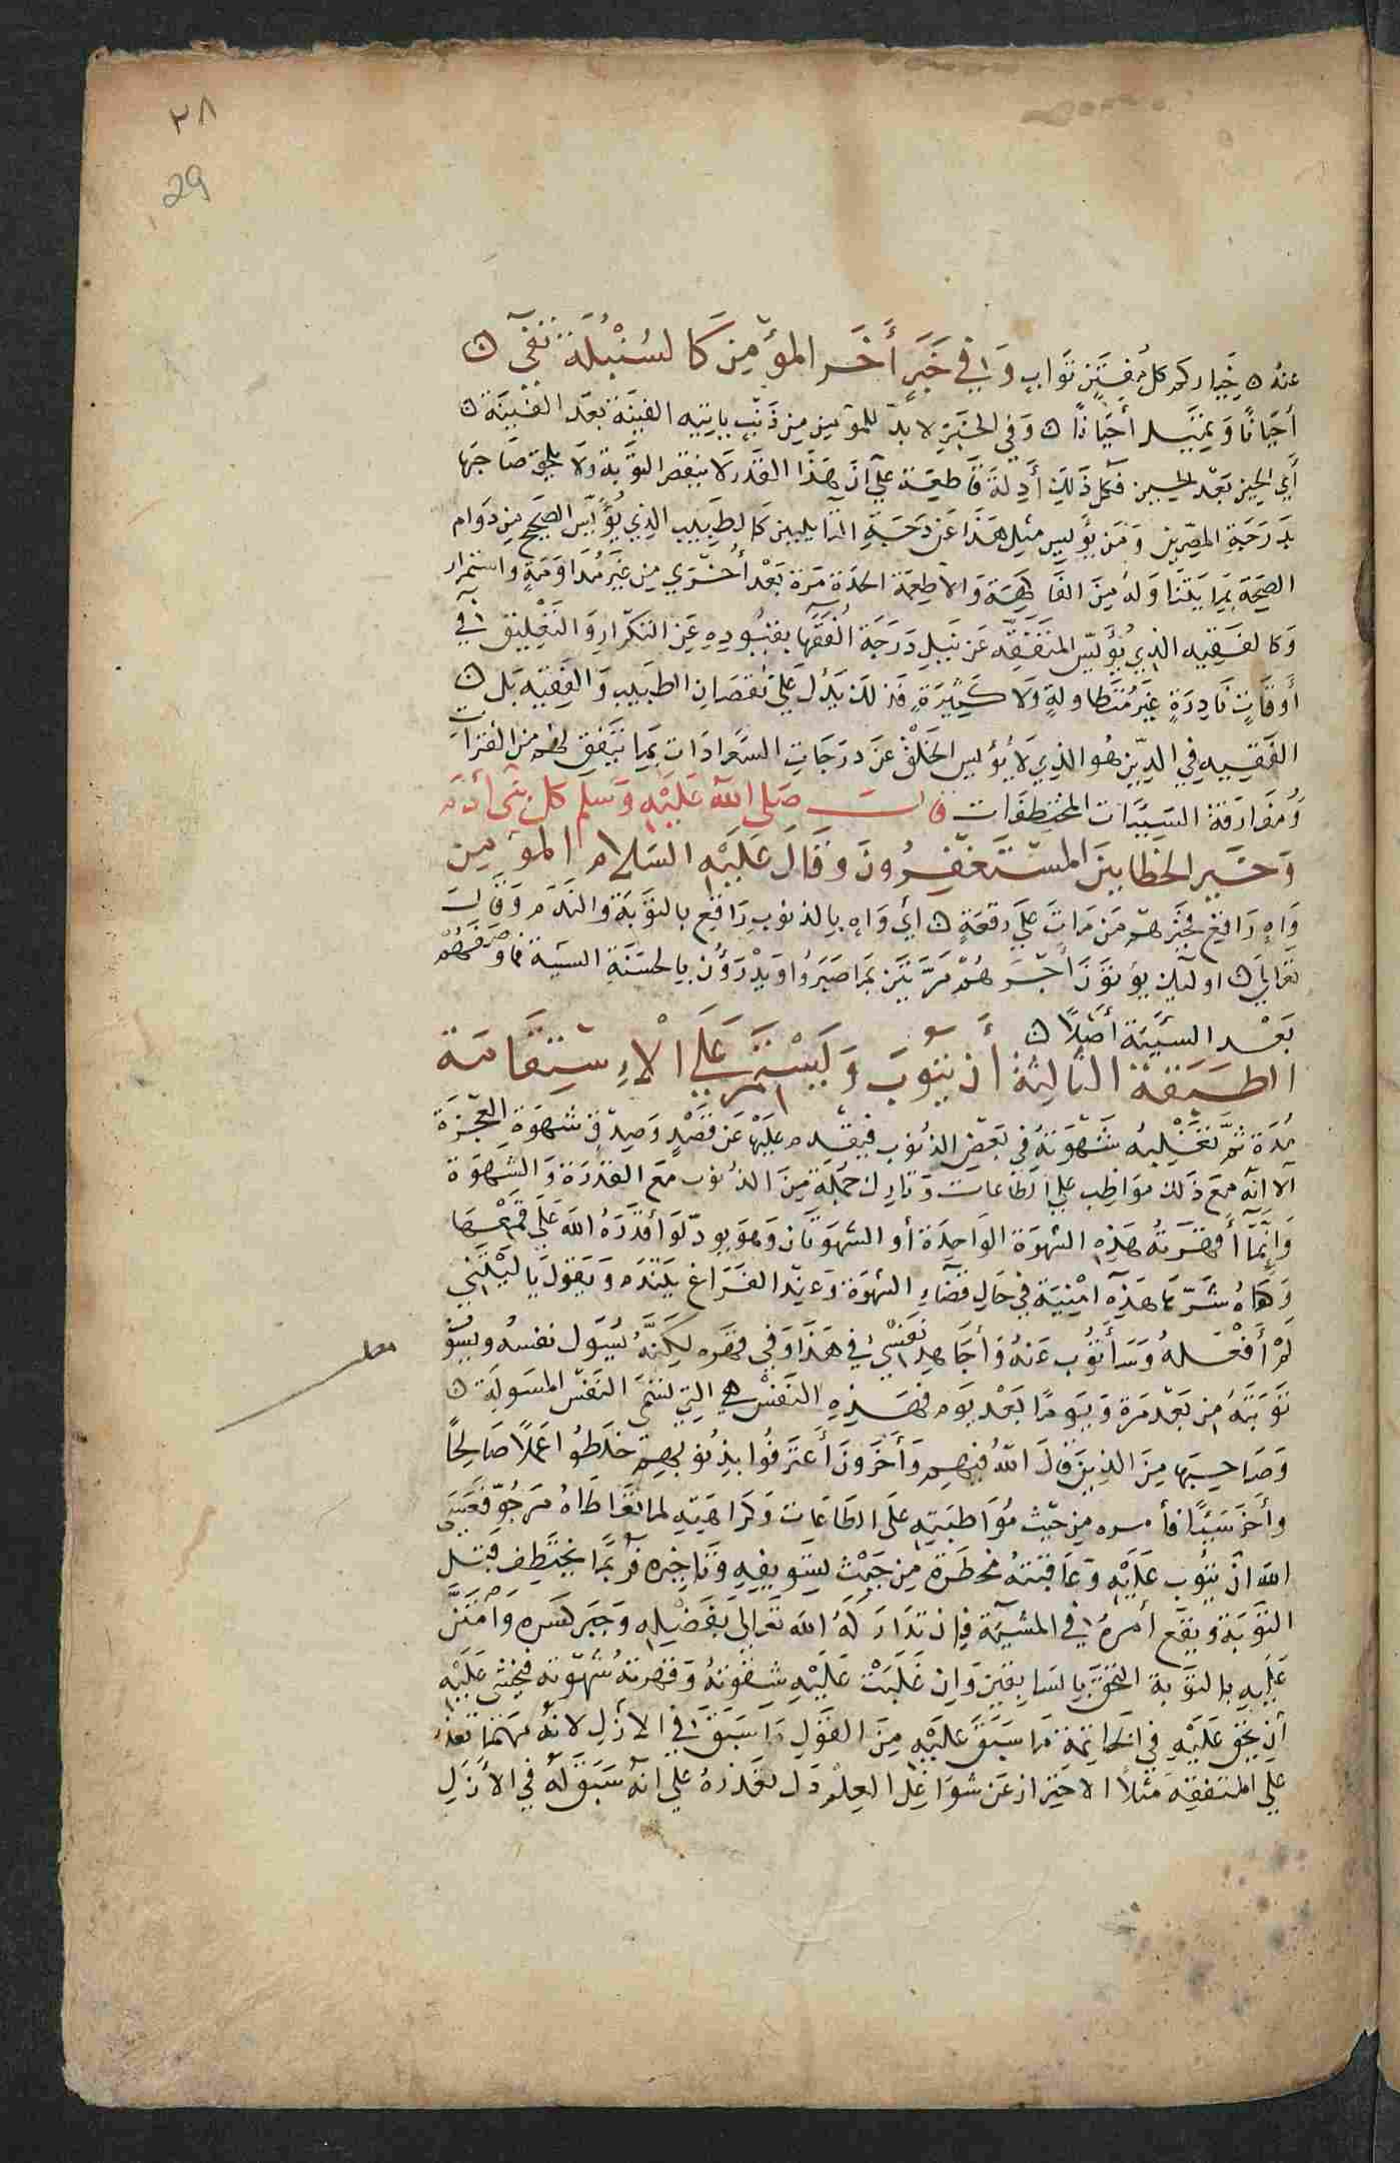 ٢٨
29
عنه ه خياركم كل مفتن تواب وفي خبر أخر المؤمن كالسنبلة تفي ه
أحيانا وتميل أحيانا ه وفي الخبر لا بد للمؤمن من ذنب ياتيه الفينة بعد الفينة ه
أي الحين بعد الحين فكل ذلك أدلة قاطعة على أن هذا القدر لا ينقض التوبة ولا يلحق صاحبها
بدرجة المصرين ومن يؤيس مثل هذا عن درجة التايبين كالطبيب الذي يؤيس الصحيح من دوام
الصحة بما يتناوله من الفاكهة والاطعمة الحادة مرة بعد أخرى من غير مداومة واستمرار
وكالفقيه الذي يؤيس المتفقه عن نيل درجة الفقها بفتوره عن التكرار والتعليق في
أوقات نادرة غير متطاولة ولا كثيرة فذلك يدل على نقصان الطبيب والفقيه بل ه
الفقيه في الدين هو الذي لا يؤيس الخلق عن درجات السعادات بما يتفق لهم من الفترات
ومقارفة السيئات المختطفات قال صلى الله عليه وسلم كل بني أدم
وخير الخطايين المستغفرون وقال عليه السلام المؤمن
واه راقع فخيرهم من مات على رقعة ه أي واه بالذنوب راقع بالتوبة والندم وقال
تعالى ه اوليك يؤتون أجرهم مرتين بما صبروا ويدرؤن بالحسنة السية فما وصفهم
بعد السيئة أصلا ه
الطبقة الثالثة أن يتوب ويستمر على الاستقامة
مدة ثم تغلبه شهوته في بعض الذنوب فيقدم عليها عن قصد وصدق شهوة لعجزه
الا انه مع ذلك مواظب على الطاعات وتارك جملة من الذنوب مع القدرة والشهوة
وإنما قهرته هذه الشهوة الواحدة أو الشهوتان وهو يود لو أقدره الله على قمعها
وكفاه شرها هذه امنية في حال قضاء الشهوة وعند الفراغ يتندم ويقول يا ليتني
لم أفعله وسأتوب عنه وأجاهد نفسي في هذا وفي قهره لكنه تسول نفسه ويسوف
توبته من بعد مرة ويوما بعد يوم فهذه النفس هي التي تسمى النفس المسولة ه
وصاحبها من الذين قال الله فيهم وأخرون أعترفوا بذنوبهم خلطوا عملا صالحا
وأخر سيئا فأمره من حيث مواظبته على الطاعات وكراهيته لما تعاطاه مرجو فعسى
الله أن يتوب عليه وعاقبته مخطرة من حيث تسويفه وتاخيره فربما يختطف قبل
التوبة ويقع أمره في المشية فإن تداركه الله تعالى بفضله وجبر كسره وأمتن
عليه بالتوبة التحق بالسابقين وان غلبت عليه شقوته وقهرته شهوته فيخشى عليه
أن يحق عليه في الخاتمة ما سبق عليه من القول ما سبق في الأزل لانه مهما تعذر
على المتفقه مثلا الاحتراز عن شواغل العلم دل تعذره على انه سبق له في الأزل